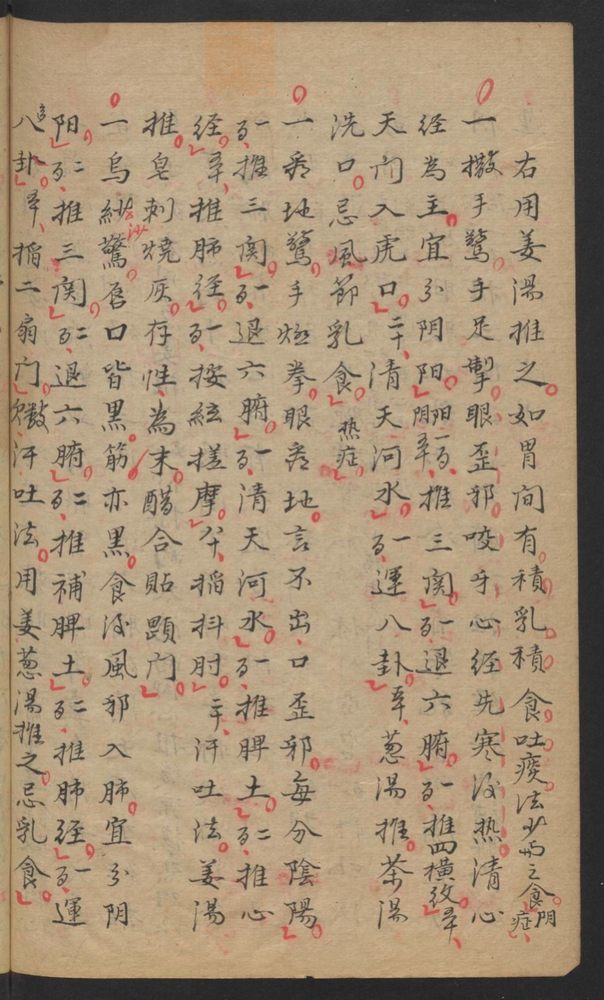 右用姜湯推之如胃间有積乳積食吐痰法少与之食阴症
一撒手驚手足掣眼歪邪咬牙心經先寒后热清心
经為主宜分阴阳阳一百阴五十推三関一百退六腑一百推四横纹五十
天门入虎口二十清天河水一百運八卦五十葱湯推茶湯
洗口忌風節乳食 热症
一看地驚手捻拳眼看地言不出口歪邪每分陰陽
一百推三関一百退六腑一百清天河水一百推脾土二百推心
经五十推肺径一百按絃搓摩八十掐抖肘二十汗吐法姜湯
推皂刺燒灰存性為末醋合貼顋门
一烏紗驚唇口皆黑筋亦黑食後風邪入肺宜分阴
阳二百推三関二百退六腑二百推補脾土二百推肺经一百運
八卦五十掐二扇门 微汗吐法用姜葱湯推之忌乳食